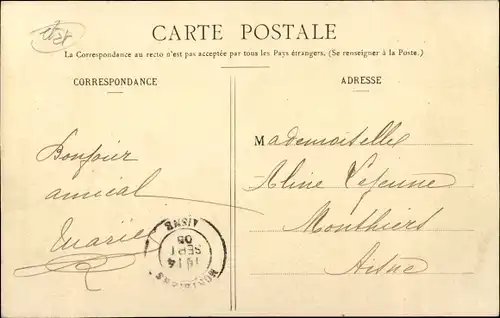 CARTE POSTALE
La Correspondance au recto n'est pas acceptée par tous les Pays étrangers. (Se renseigner à la Poste.)
CORRESPONDANCE
Bonjour
amical
Marie
AISNE
14
SEPT
05
ADRESSE
Mademoiselle
Aline Lejeune
Monthiers
Aisne